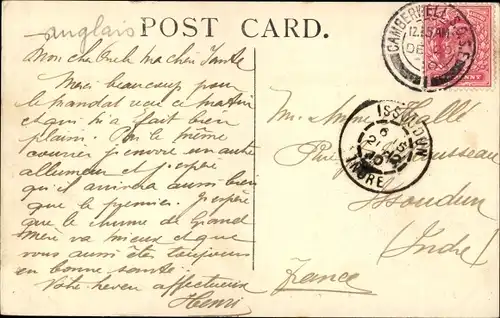 anglais
POST CARD.
CAMBERWELL S.O.
12.15 AM
DE 20
Mon cher Oncle ma chère Tante
Merci beaucoup pour
le mandat reçu ce matin
et qui m'a fait bien
plaisir. Par le même
courrier j'envoie un autre
allumeur et j'espère
qu'il arrivera aussi bien
que le premier. J'espère
que le rhume de Grand
Mère va mieux et que
vous aussi êtes toujours
en bonne santé.
Votre neveu affectueux
Henri
ISSOUDUN
INDRE
Rousseau
Issoudun
(Indre)
France